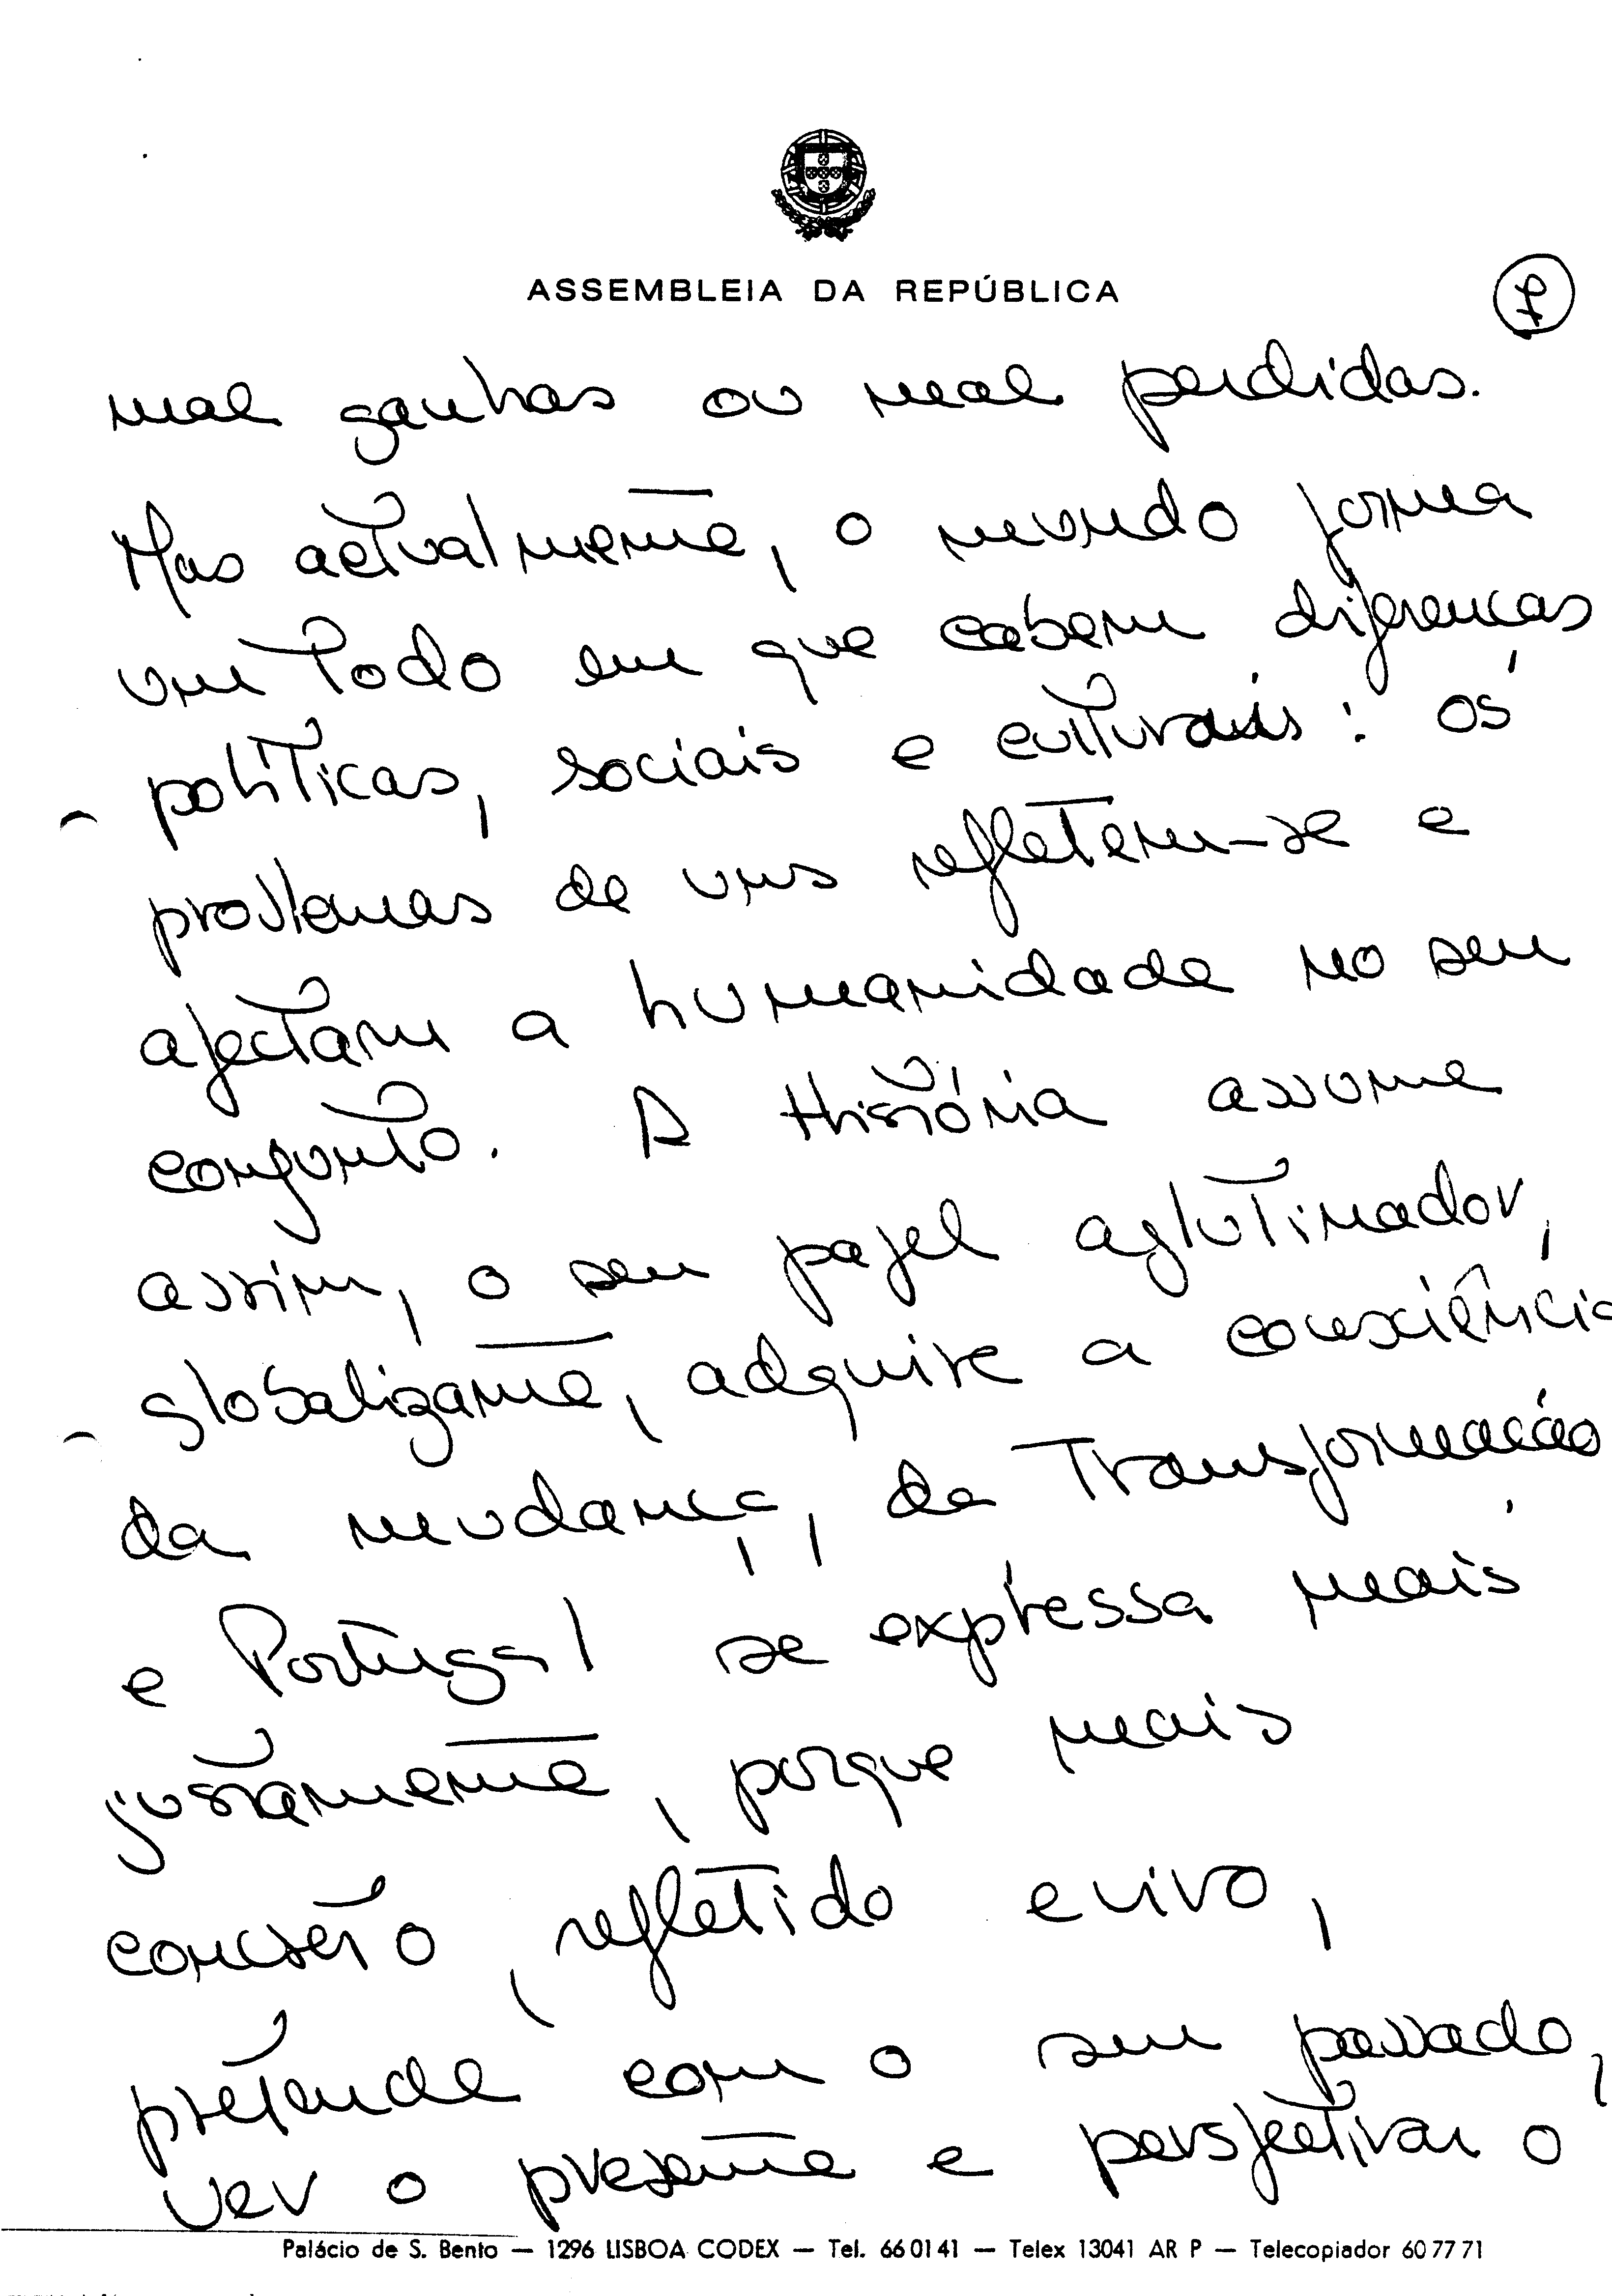 ASSEMBLEIA DA REPÚBLICA
7
mal ganhas ou mal perdidas.
Mas actualmente, o mundo forma
um todo em que cabem diferenças
políticas, sociais e culturais: os
problemas de uns refletem-se e
afectam a humanidade no seu
conjunto. A História assume
assim, o seu papel aglutinador,
globalizante, adquire a consciência
da mudança, da transformação
e Portugal se expressa mais
justamente, porque mais
concreto, refletido e vivo,
pretende com o seu passado,
ver o presente e perspectivar o
Palácio de S. Bento — 1296 LISBOA CODEX — Tel. 66 01 41 — Telex 13041 AR P — Telecopiador 60 77 71